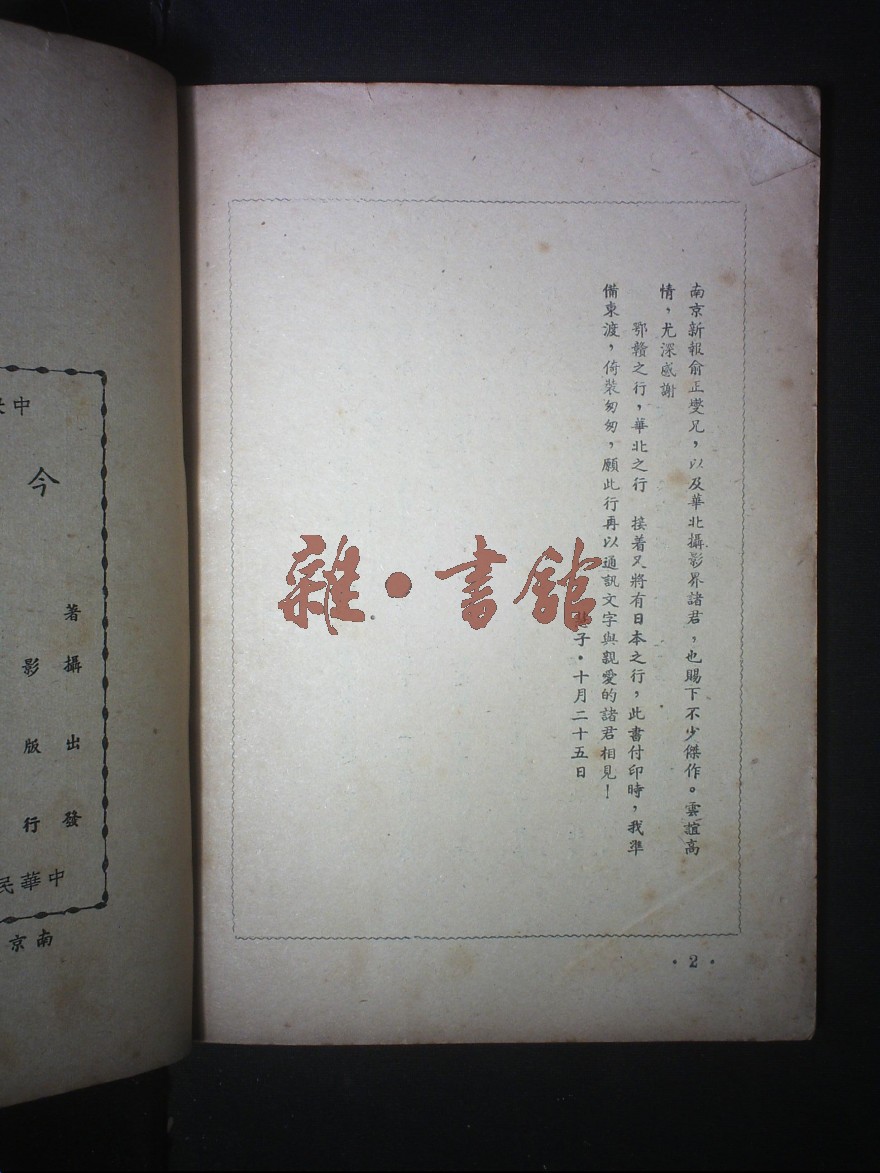 南京新報俞正燮兄，以及華北攝影界諸君，也賜下不少傑作。雲誼高
情，尤深感謝
鄂贛之行，華北之行　接着又將有日本之行，此書付印時，我準
備東渡，倚裝匆匆，願此行再以通訊文字與親愛的諸君相見！
子·十月二十五日
·2·
雜·書館
中
今
著 攝 出 發
影 版 行
中華民
南京